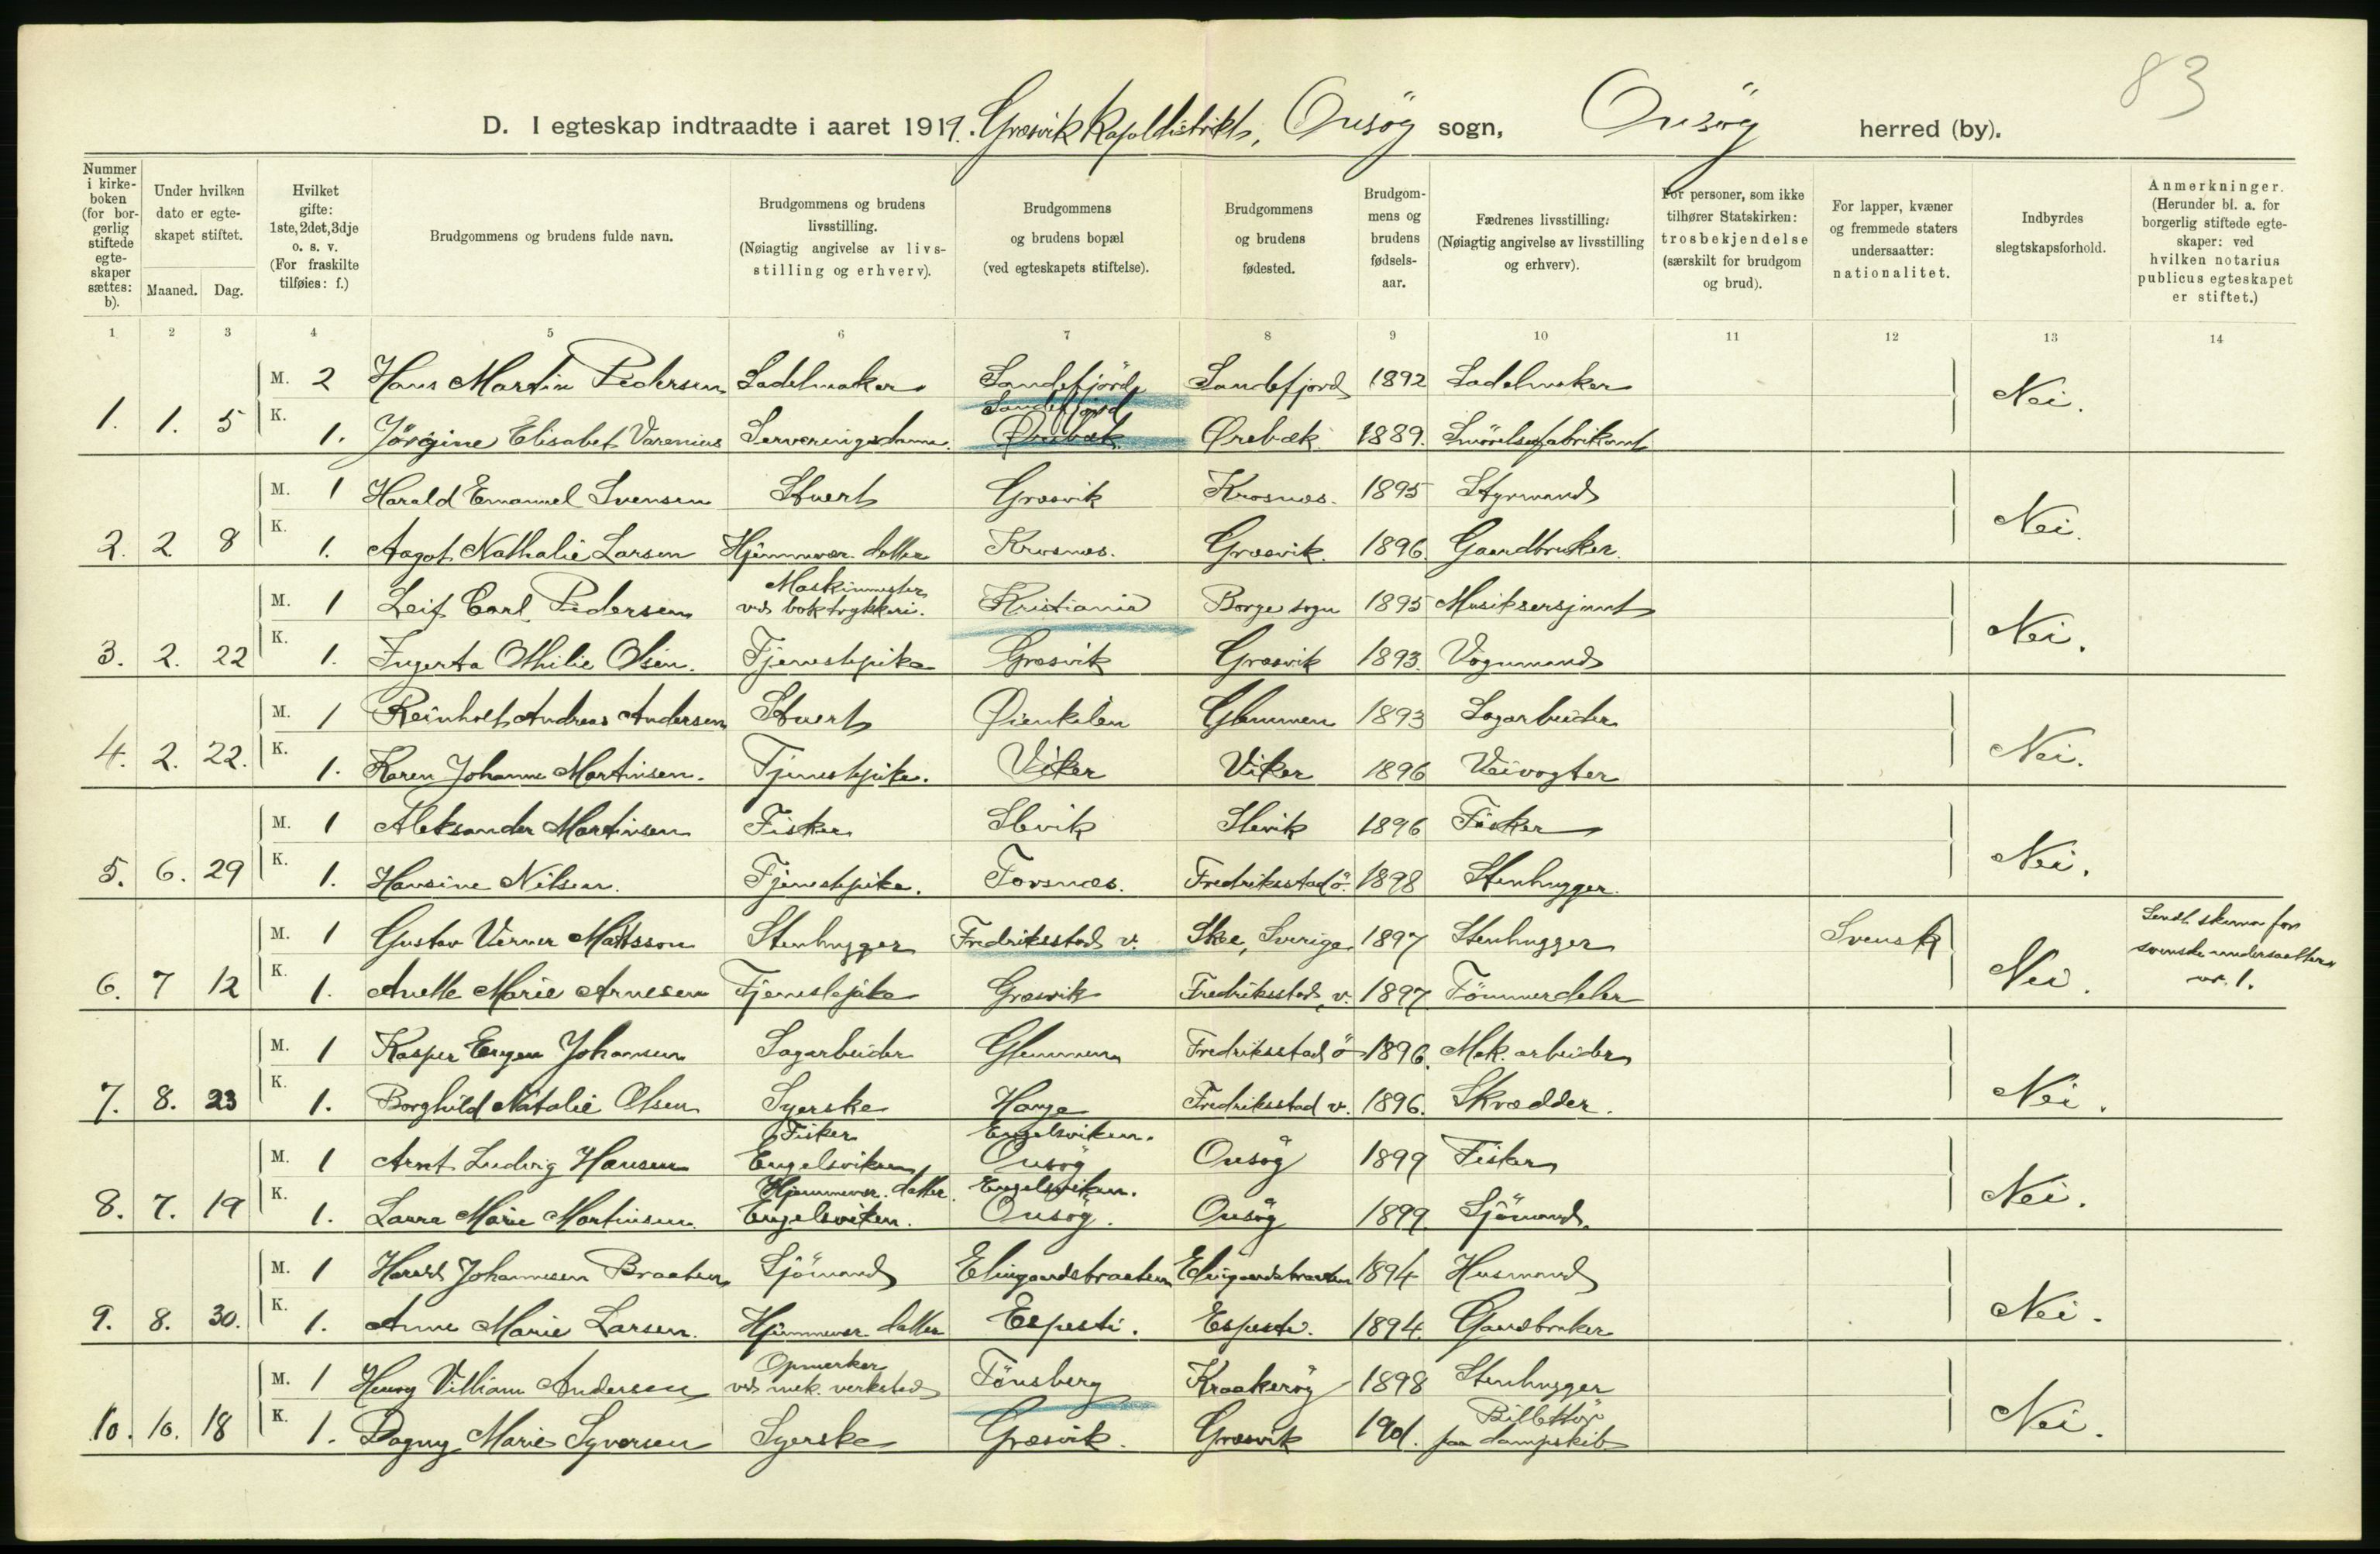 83
D. I egteskap indtraadte i aaret 1919. Græsvik Kapeldistrikt, Onsøy sogn, Onsøy herred (by).
Nummer i kirkeboken (for borgerlig stiftede egteskaper sættes: b).
Under hvilken dato er egteskapet stiftet.
Maaned. Dag.
Hvilket gifte: 1ste, 2det, 3dje o. s. v. (For fraskilte tilføies: f.)
Brudgommens og brudens fulde navn.
Brudgommens og brudens livsstilling. (Nøiagtig angivelse av livsstilling og erhverv).
Brudgommens og brudens bopæl (ved egteskapets stiftelse).
Brudgommens og brudens fødested.
Brudgommens og brudens fødselsaar.
Fædrenes livsstilling: (Nøiagtig angivelse av livsstilling og erhverv).
For personer, som ikke tilhører Statskirken: trosbekjendelse (særskilt for brudgom og brud).
For lapper, kvæner og fremmede staters undersaatter: nationalitet.
Indbyrdes slegtskapsforhold.
Anmerkninger. (Herunder bl. a. for borgerlig stiftede egteskaper: ved hvilken notarius publicus egteskapet er stiftet.)
1 2 3 4 5 6 7 8 9 10 11 12 13 14
M. 2 Hans Martin Pedersen Sadelmaker Sandefjörd Sandefjord 1892 Sadelmaker Nei.
Sandefjord
1. 1. 5 K. 1. Jörgine Elisabet Varenius Serveringsdame. Ørebæk Ørebæk 1889. Smörelsefabrikant
M. 1 Harald Emanuel Svensen Stuert Græsvik Krosnæs. 1895 Styrmand Nei.
2. 2 8 K. 1. Aagot Nathalie Larsen Hjemmevær. datter Krosnæs. Græsvik. 1896. Gaardbruker.
M. 1 Leif Carl Pedersen Maskinmester ved boktrykkeri. Kristiania Borge sogn 1895 Musiksersjant Nei.
3. 2. 22 K. 1. Ingerta Othilie Olsen. Tjenestepike Græsvik Græsvik 1893. Vognmand
M. 1 Reinholt Andreas Andersen Stuert Øienkilen Glemmen 1893 Sagarbeider Nei.
4. 2. 22. K. 1. Karen Johanne Martinsen. Tjenestepike. Viker Viker 1896 Veivogter
M. 1 Aleksander Martinsen Fisker Slevik Slevik 1896 Fisker Nei.
5. 6. 29 K. 1. Hansine Nilsen. Tjenestepike. Torsnæs. Fredriksstad ö. 1898 Stenhugger.
M. 1 Gustav Verner Mattsson Stenhugger Fredriksstad v. Skee, Sverige. 1897 Stenhugger Svensk Nei. Sendt skema for svenske undersaatter nr. 1.
6. 7 12 K. 1. Anette Marie Arnesen Tjenestepike Græsvik Fredriksstad v. 1897 Tömmerdeler
M. 1 Kasper Eugen Johansen Sagarbeider Glemmen Fredriksstad ö 1896. Mek. arbeider Nei.
7. 8. 23 K. 1. Borghild Natalie Olsen Syerske Hauge Fredriksstad v. 1896. Skrædder.
Fisker Engelsviken.
M. 1 Arnt Ludvig Hansen Engelsviken Onsöy Onsöy 1899 Fisker Nei.
Hjemmevær. datter. Engelsviken.
8. 7. 19 K. 1. Laura Marie Martinsen Engelsviken. Onsöy. Onsöy 1899. Sjömand.
M. 1 Harald Johannesen Braaten Sjömand Elingaardsbraaten Elingaardsbraaten 1894 Husmand Nei.
9. 8. 30. K. 1. Anne Marie Larsen. Hjemmevær. datter Espesti. Espesti. 1894. Gaardbruker
M. 1 Henry Villiam Andersen Opmerker ved mek. verksted Tönsberg Kraakeröy 1898 Stenhugger Nei.
10. 10. 18 K. 1. Dagny Marie Syversen Syerske Græsvik. Græsvik 1901. Billettör paa dampskib